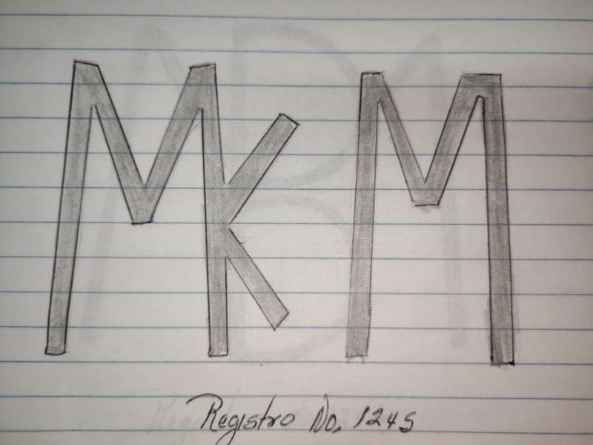 MKM
Registro No. 1245